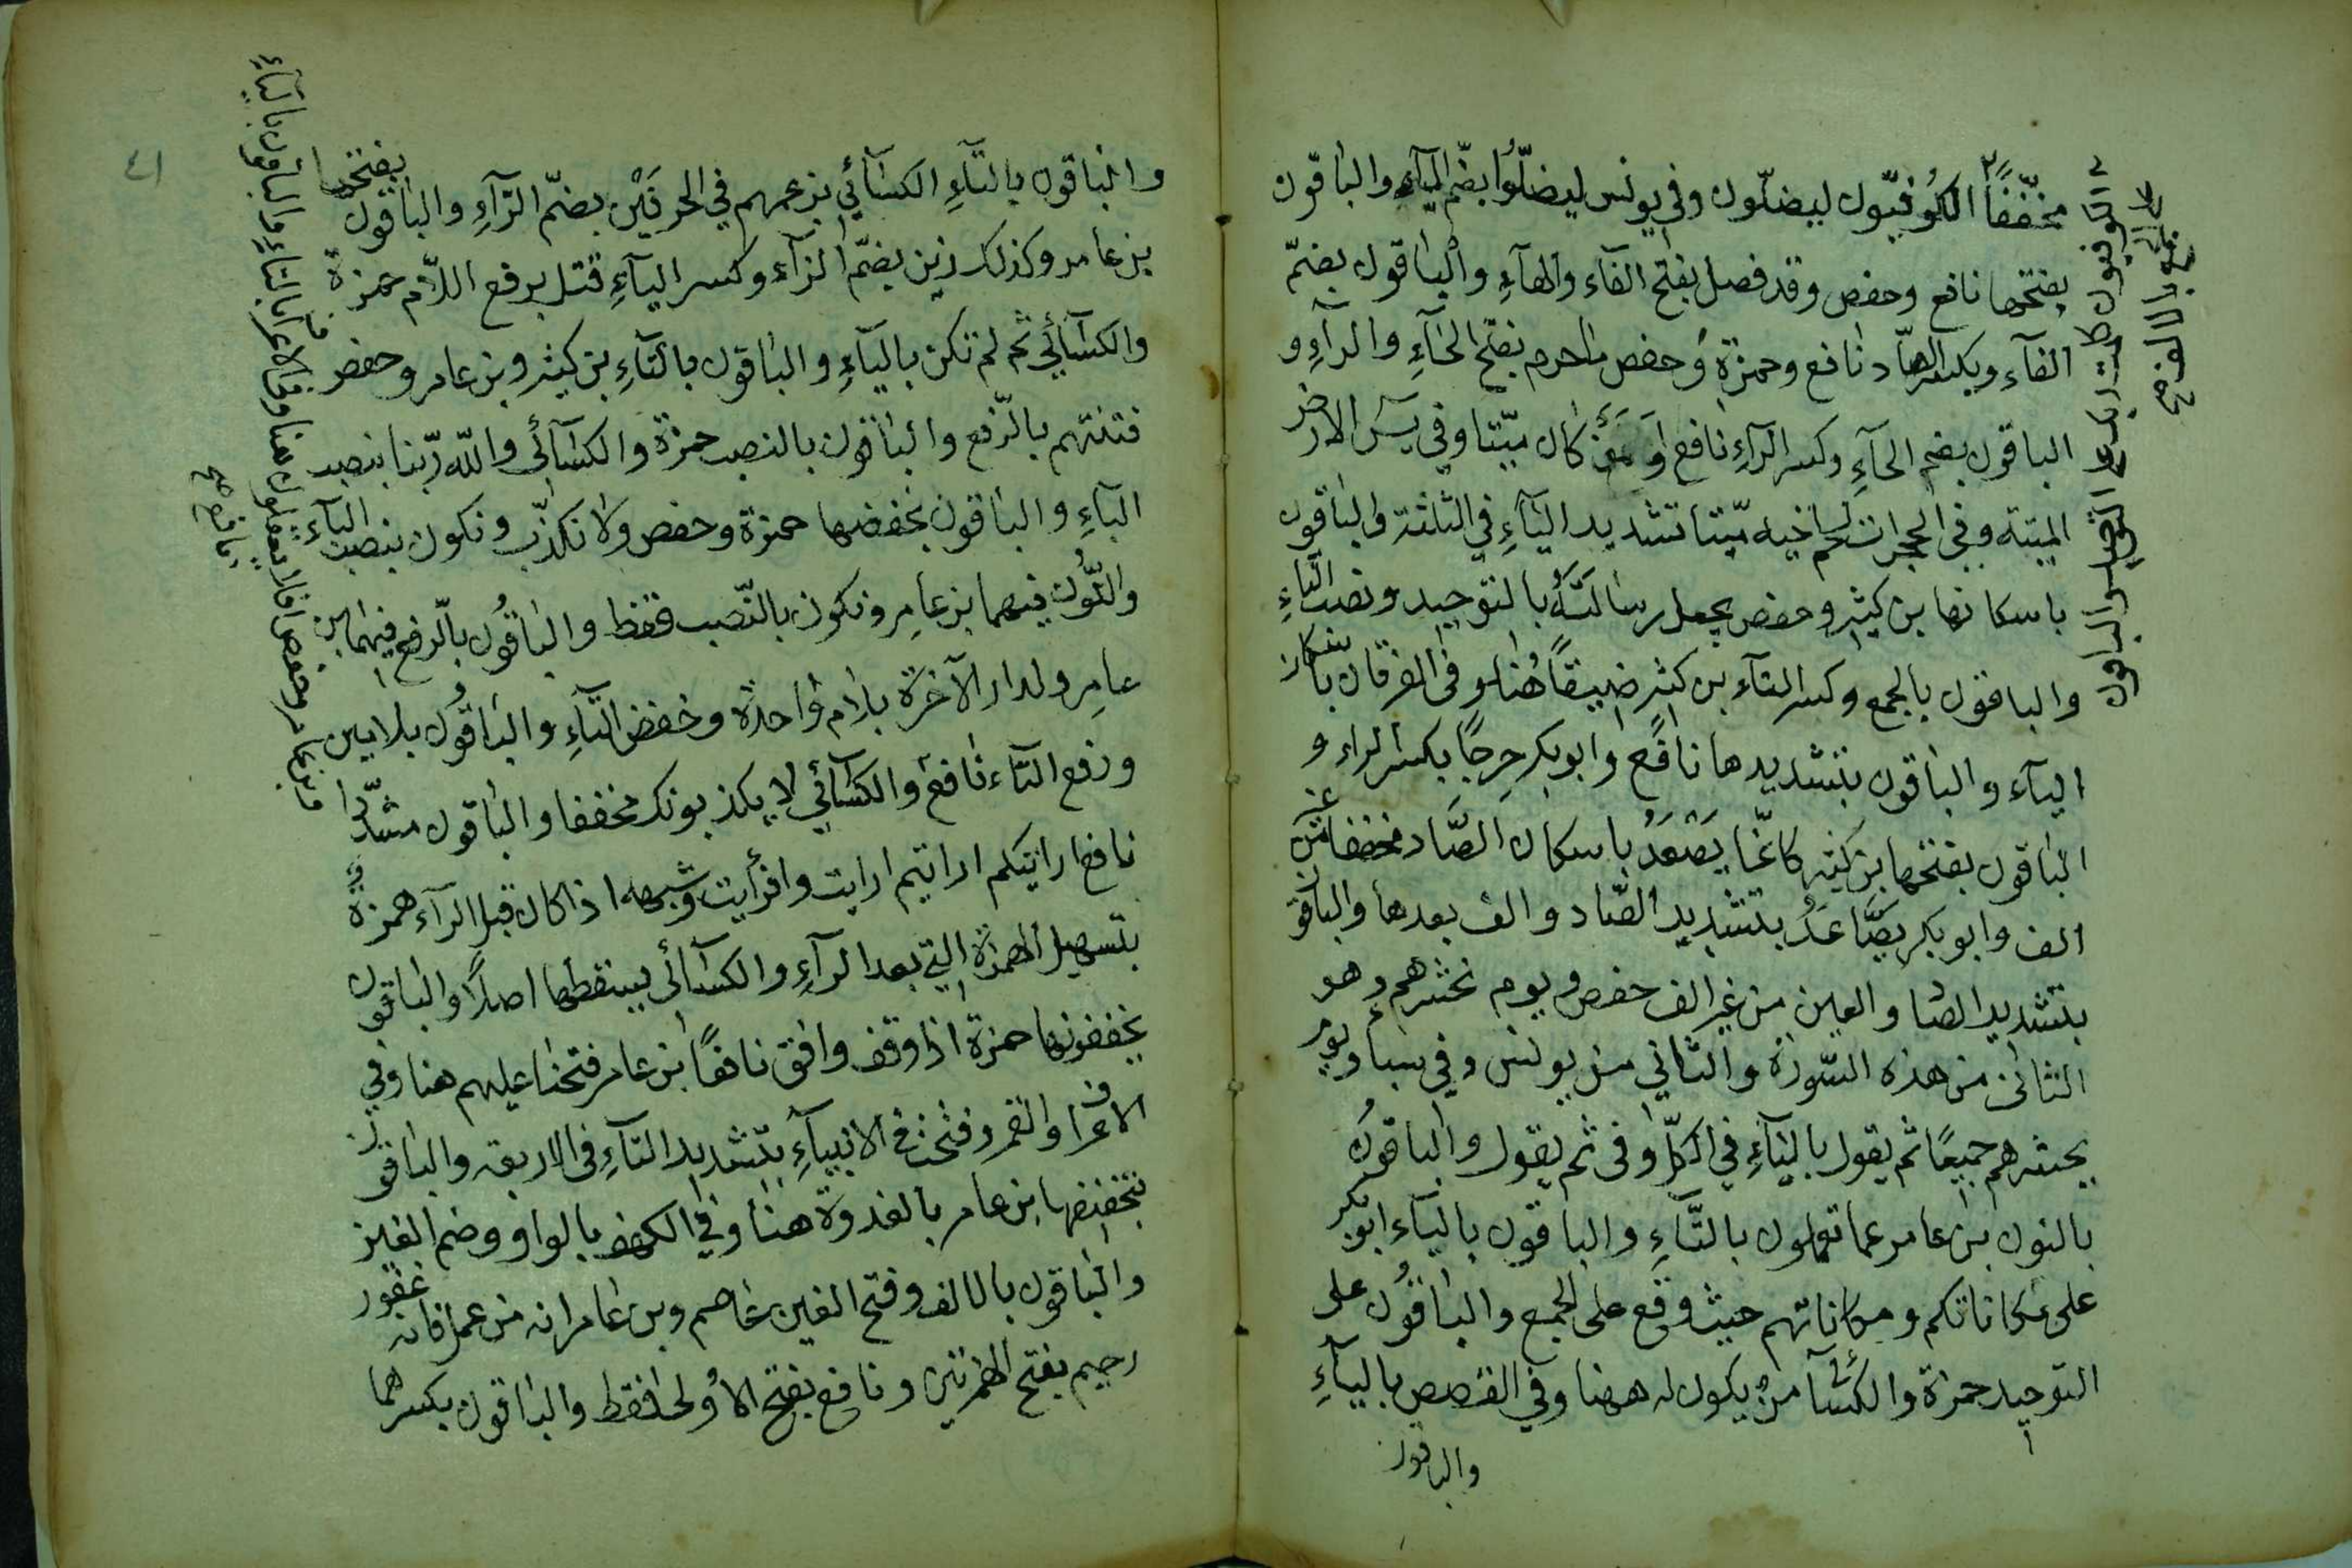 مخفّفًا الكوفيّون ليضلّون وفي يونس ليضلّوا بضّم اليآءِ والباقون
يفتحها نافع وحفص وقد فصل بفتح الفاء والصآءِ والباقون بضمّ
الفآءِ وبكسر الصّاد نافع وحمزة وحفص ما حرم بفتح الحآءِ والرآءِ و
الباقون بضم الحآءِ وكسر الرآءِ نافع اَوَمَنْ كان ميّتا وفي يسۤ الارض
الميتة وفي الحجرات لحم اخيه ميّتا تشديد اليآءِ في الثلثة والباقون
باسكانها بن كثير وحفص يجعل رسالَتَهُ بالتوحيد ونصب التّاءِ
والباقون بالجمع وكسر التآء بن كثير ضيقًا هُنا وفي الفرقان باسكان
اليآء والباقون بتشديدها نافع وابو بكر حرِجًا بكسر الراء و
الباقون بفتحها بن كثير كانّما يَصْعَدُ باسكان الصّاد مخففا من غير
الف وابو بكر يصَّاعَدُ بتشديد الصّاد والف بعدها والباقون
بتشديد الصّاد والعين من غير الف حفص ويوم نحشرهم وهو
الثاني من هذه السّورة والثاني من يونس وفي سبا ويوم
يحشرهم جميعًا ثم يقول باليآءِ في الكلّ وفي ثم يقول والباقون
بالنون بن عامر عما تعملون بالتَّاءِ والباقون باليآء ابو بكر
على مكاناتكم ومكاناتهم حيث وقع على الجمع والباقون على
التوحيد حمزة والكسآئي من يكون له ههنا وفي القصص باليآءِ
والباقون
والباقون بالتّآءِ الكسآئي بزعمهم في الحرفَيْن بضمّ الزّآءِ والباقون بفتحها
بن عامر وكذلك زين بضمّ الزآء وكسر اليآءِ قتل برفع اللّام حمزة
والكسآئي ثم لم تكن باليآءِ والباقون بالتآءِ بن كثير وبن عامر وحفص
فتنتهم بالرّفع والباقون بالنصب حمزة والكسآئي واللّه ربّنا بنصب
البآءِ والباقون بخفضها حمزة وحفص ولا نكذّب ونكون بنصب البآء
والنّون فيهما بن عامر ونكون بالنّصب فقط والباقون بالرفع فيهما بن
عامر ولدار الآخرة بلام واحدة وخفض التآءِ والباقون بلامين
ورفع التآء نافع والكسآئي لا يكذبونك مخففا والباقون مشدّدا
نافع ارايتكم ارايتم ارايت وافرأيت وشبهه اذا كان قبل الرآء همزة
بتسهيل الهمزة التي بعد الرآءِ والكسآئي يسقطها اصلًا والباقون
يخففونها حمزة اذا وقف وافق نافعًا بن عامر فتحنا عليهم هنا وفي
الاعراف والقمر وفتحت في الانبيآءِ بتشديد التآءِ في الاربعة والباقون
بتخفيفها بن عامر بالغدوة هنا وفي الكهف بالواو وضم الغين
والباقون بالالف وفتح الغين عاصم وبن عامر انه من عمل فانه غفور
رحيم بفتح الهمزتين ونافع يفتح الاولى فقط والباقون بكسرهما